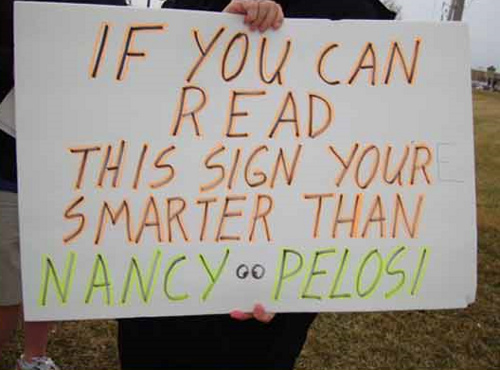 IF YOU CAN
READ
THIS SIGN YOURE
SMARTER THAN
NANCY PELOSI